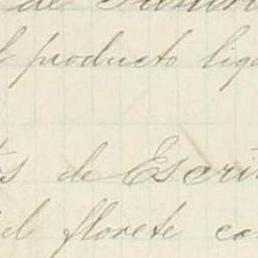 de
l producto liqu
s de Escri
el florete ca